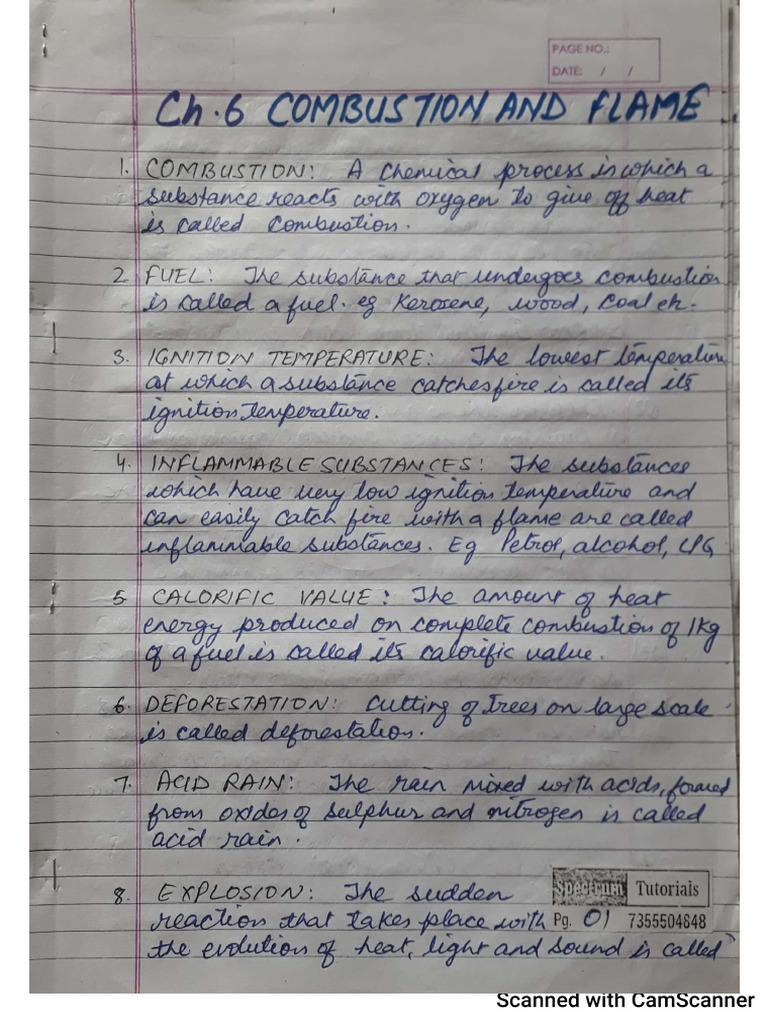 PAGE NO.:
DATE: / /
Ch.6 COMBUSTION AND FLAME
1. COMBUSTION: A chemical process in which a
substance reacts with oxygen to give off heat
is called combustion.
2 FUEL: The substance that undergoes combustion
is called a fuel. eg Kerosene, wood, coal etc.
3. IGNITION TEMPERATURE: The lowest temperature
at which a substance catches fire is called its
ignition temperature.
4. INFLAMMABLE SUBSTANCES: The substances
which have very low ignition temperature and
can easily catch fire with a flame are called
inflammable substances. Eg Petrol, alcohol, LPG
5 CALORIFIC VALUE: The amount of heat
energy produced on complete combustion of 1kg
of a fuel is called its calorific value.
6. DEFORESTATION: Cutting of trees on large scale
is called deforestation.
7. ACID RAIN: The rain mixed with acids, formed
from oxides of sulphur and nitrogen is called
acid rain.
8. EXPLOSION: The sudden
reaction that takes place with
the evolution of heat, light and sound is called
Spectrum Tutorials
Pg. 01 7355504848
Scanned with CamScanner